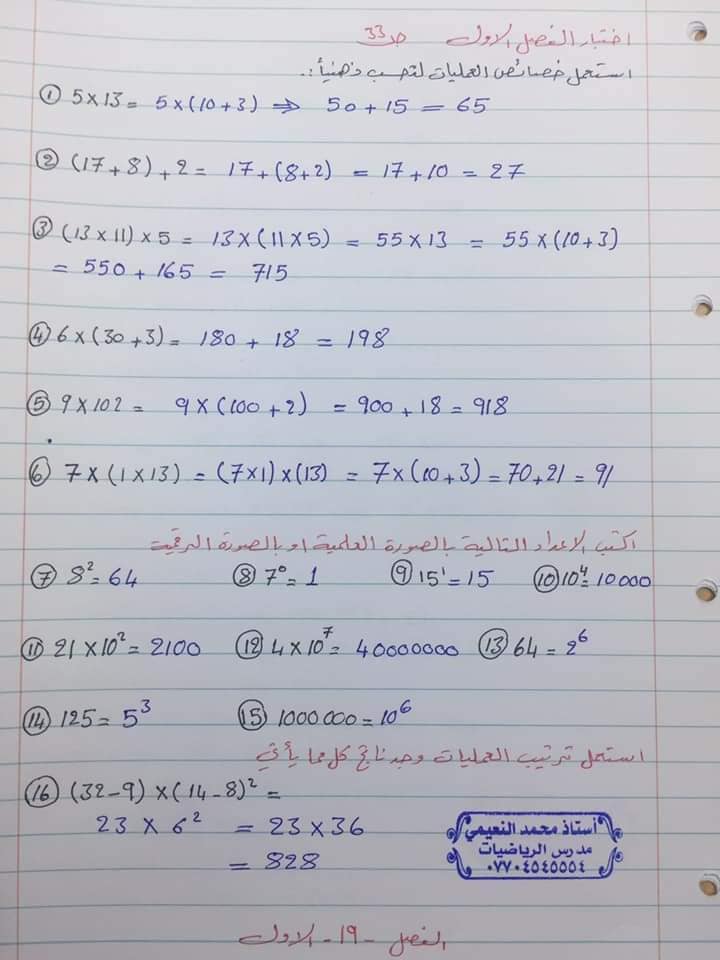 اختبار الفصل الاول ص 33
استعمل خصائص العمليات لتحسب ذهنياً:.
① 5 x 13 = 5 x (10 + 3) ⇒ 50 + 15 = 65
② (17 + 8) + 2 = 17 + (8 + 2) = 17 + 10 = 27
③ (13 x 11) x 5 = 13 x (11 x 5) = 55 x 13 = 55 x (10 + 3)
= 550 + 165 = 715
④ 6 x (30 + 3) = 180 + 18 = 198
⑤ 9 x 102 = 9 x (100 + 2) = 900 + 18 = 918
⑥ 7 x (1 x 13) = (7 x 1) x (13) = 7 x (10 + 3) = 70 + 21 = 91
اكتب الاعداد التالية بالصورة العلمية او بالصورة الرقمية
⑦ 8² = 64 ⑧ 7⁰ = 1 ⑨ 15¹ = 15 ⑩ 10⁴ = 10000
⑪ 21 x 10² = 2100 ⑫ 4 x 10⁷ = 40000000 ⑬ 64 = 2⁶
⑭ 125 = 5³ ⑮ 1000000 = 10⁶
استعمل ترتيب العمليات وجد ناتج كل مما يأتي
⑯ (32 - 9) x (14 - 8)² =
23 x 6² = 23 x 36
= 828
أستاذ محمد النعيمي
مدرس الرياضيات
٠٧٧٠٤٥٤٥٥٥٤
الفصل - 19 - الاول